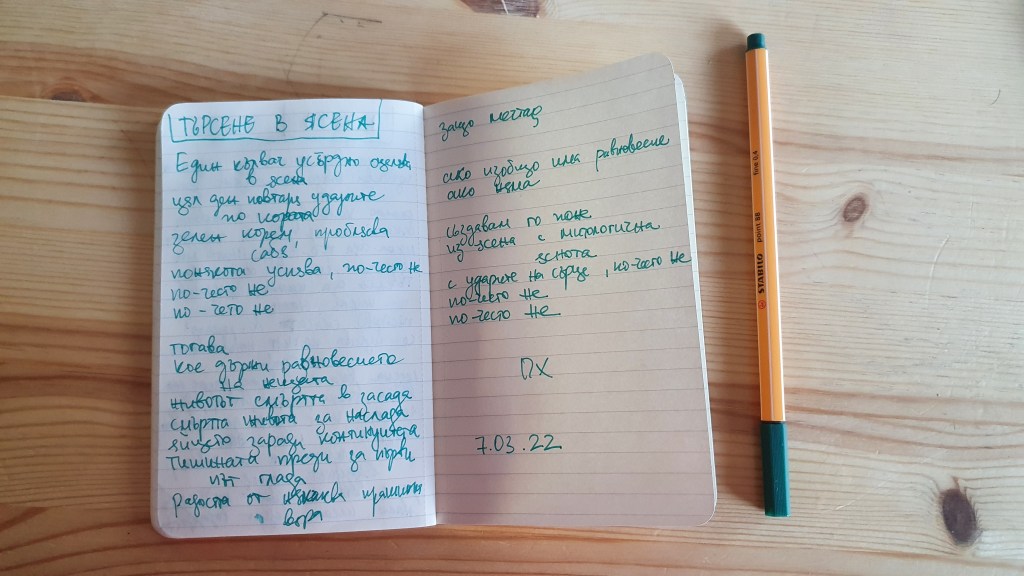 ТЪРСЕНЕ В ЯСЕНА
Един кълвач усърдно
в ясена
цял ден повтаря ударите
по кората
зелен корем, проблясва
сово
понякога успява, по-често не
по-често не
по-често не
тогава
кое държи равновесието
на нещата
животът смъртта в засада
смъртта живота за наслада
яйцето заради континуитета
тишината преди за първи
път глада
радостта от някаква
вяра
защо мечтая
ако изобщо има равновесие
ако няма
създавам го поне
из ясена с митологична
яснота
с ударите на сърце, по-често не
по-често не
по-често не
ПХ
7.03.22
STABILO point 88 fine 0.4